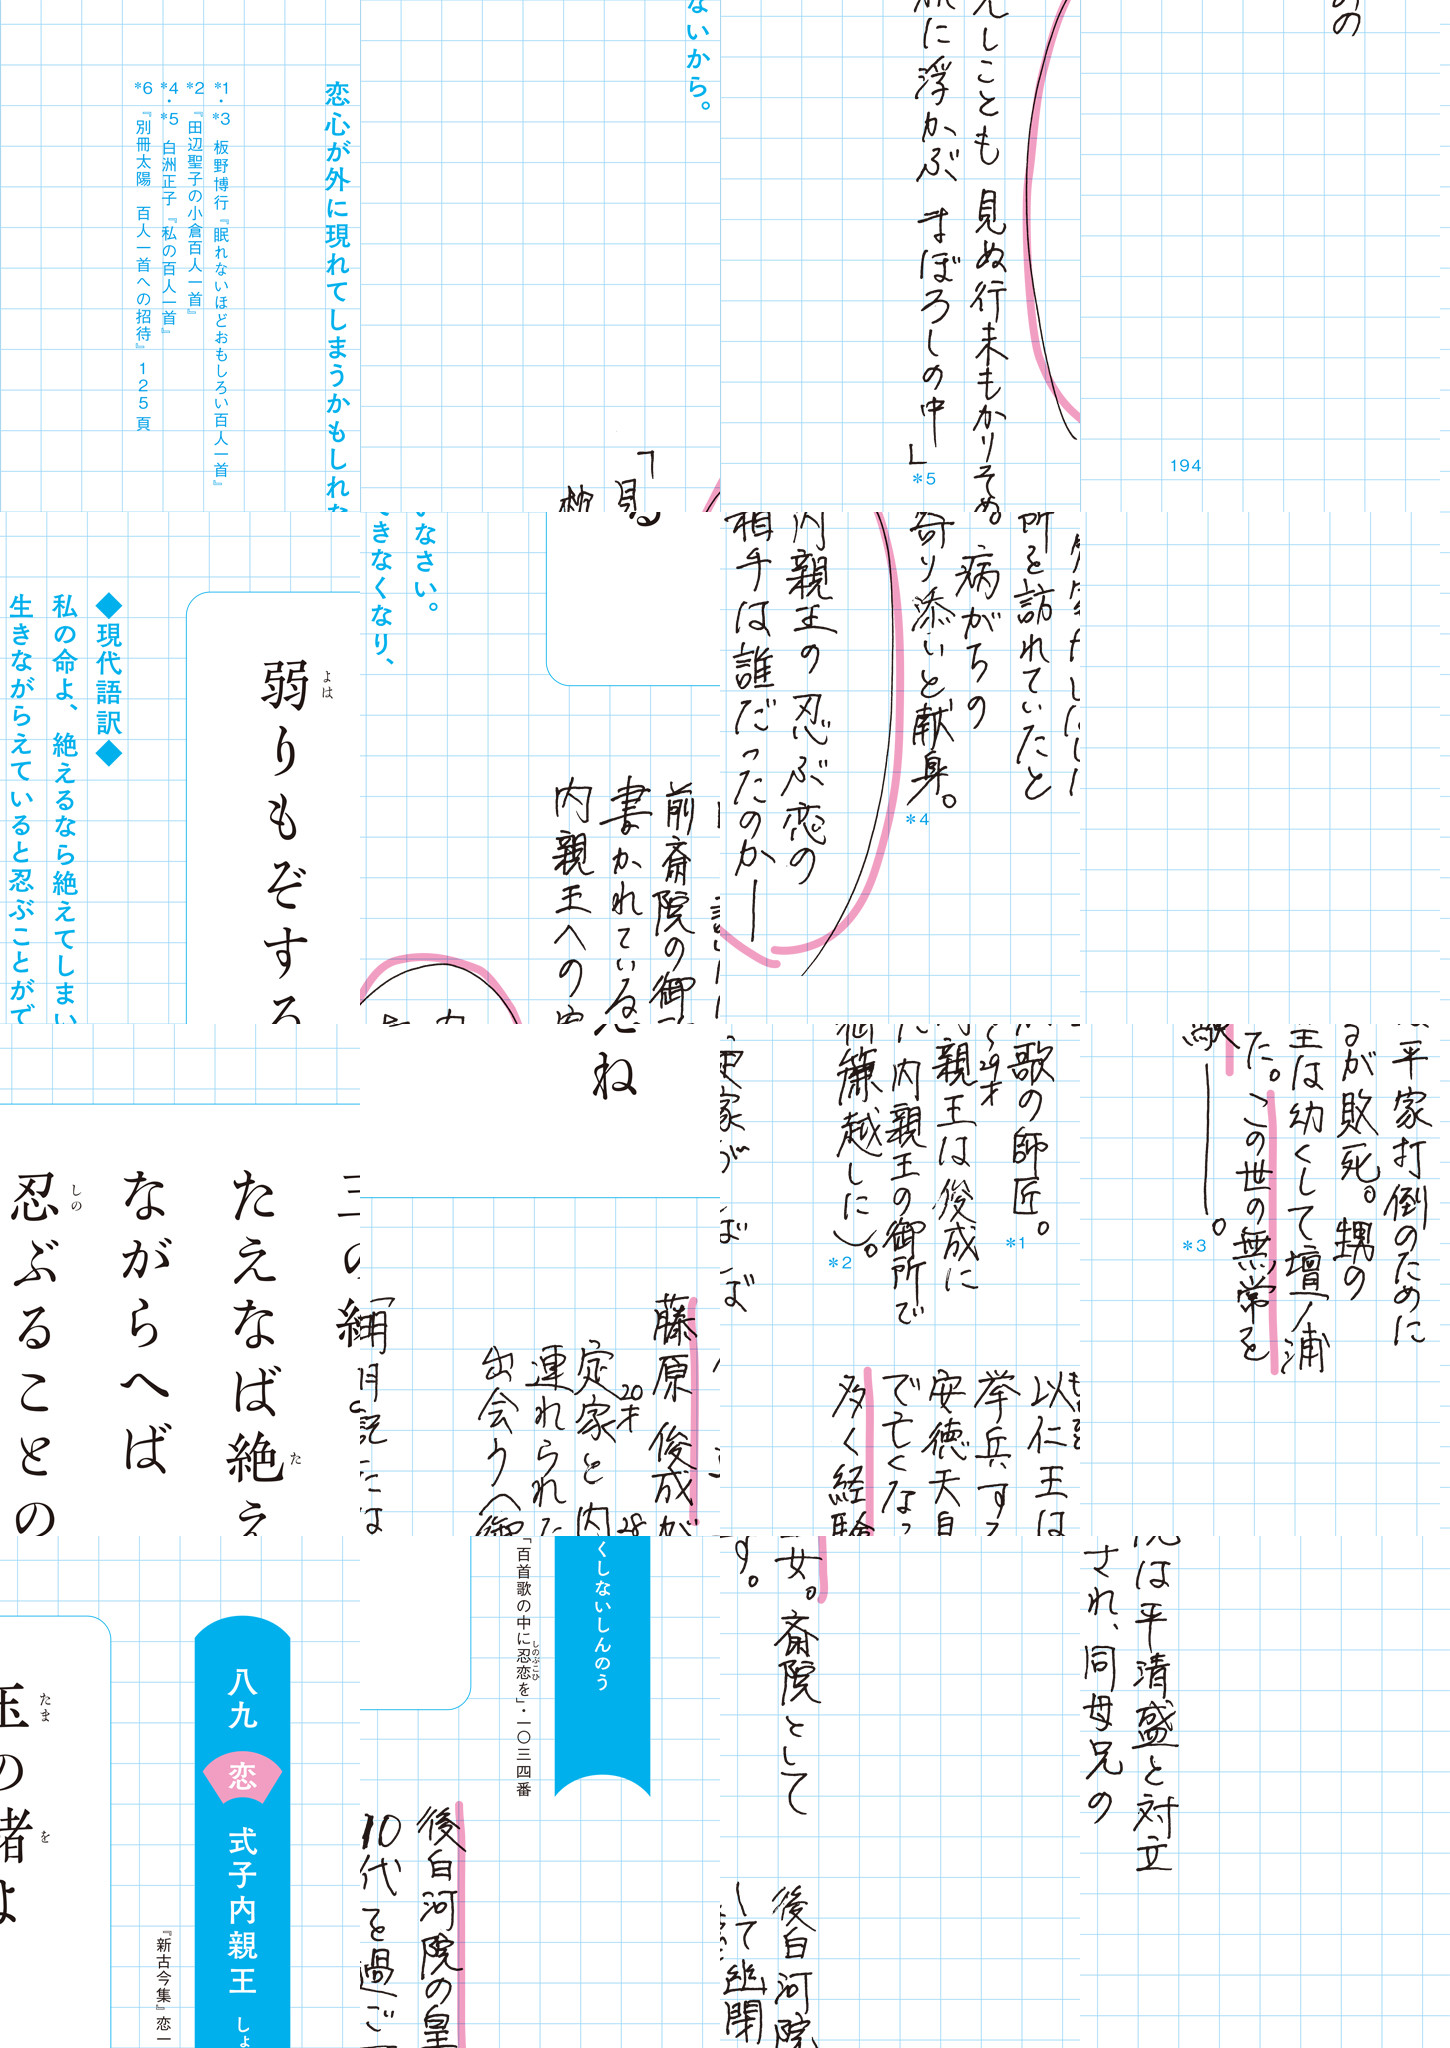 八九 恋 式子内親王 しょくしないしんのう
『新古今集』恋一「百首歌の中に忍恋を」・一〇三四番
玉の緒よ
たえなば絶えね
ながらへば
忍ぶることの
弱りもぞする
後白河院の皇女。斎院として
10代を過ごす。
後白河院は平清盛と対立
して幽閉され、同母兄の
以仁王は平家打倒のために
挙兵するが敗死。甥の
安徳天皇は幼くして壇ノ浦
で亡くなった。この世の無常を
多く経験――。*3
藤原俊成が歌の師匠。*1
20才 28〜29才
定家と内親王は俊成に
連れられた内親王の御所で
出会う(御簾越しに)。*2
『明月記』には定家がしばしば
前斎院の御所を訪れていたと
書かれている。病がちの
内親王への寄り添いと献身。*4
内親王の忍ぶ恋の
相手は誰だったのか―
「見しことも 見ぬ行末もかりそめの
枕に浮かぶ まぼろしの中」*5
◆現代語訳◆
私の命よ、絶えるなら絶えてしまいなさい。
生きながらえていると忍ぶことができなくなり、
恋心が外に現れてしまうかもしれないから。
*1・*3 板野博行『眠れないほどおもしろい百人一首』
*2 『田辺聖子の小倉百人一首』
*4・*5 白洲正子『私の百人一首』
*6 『別冊太陽 百人一首への招待』125頁
194